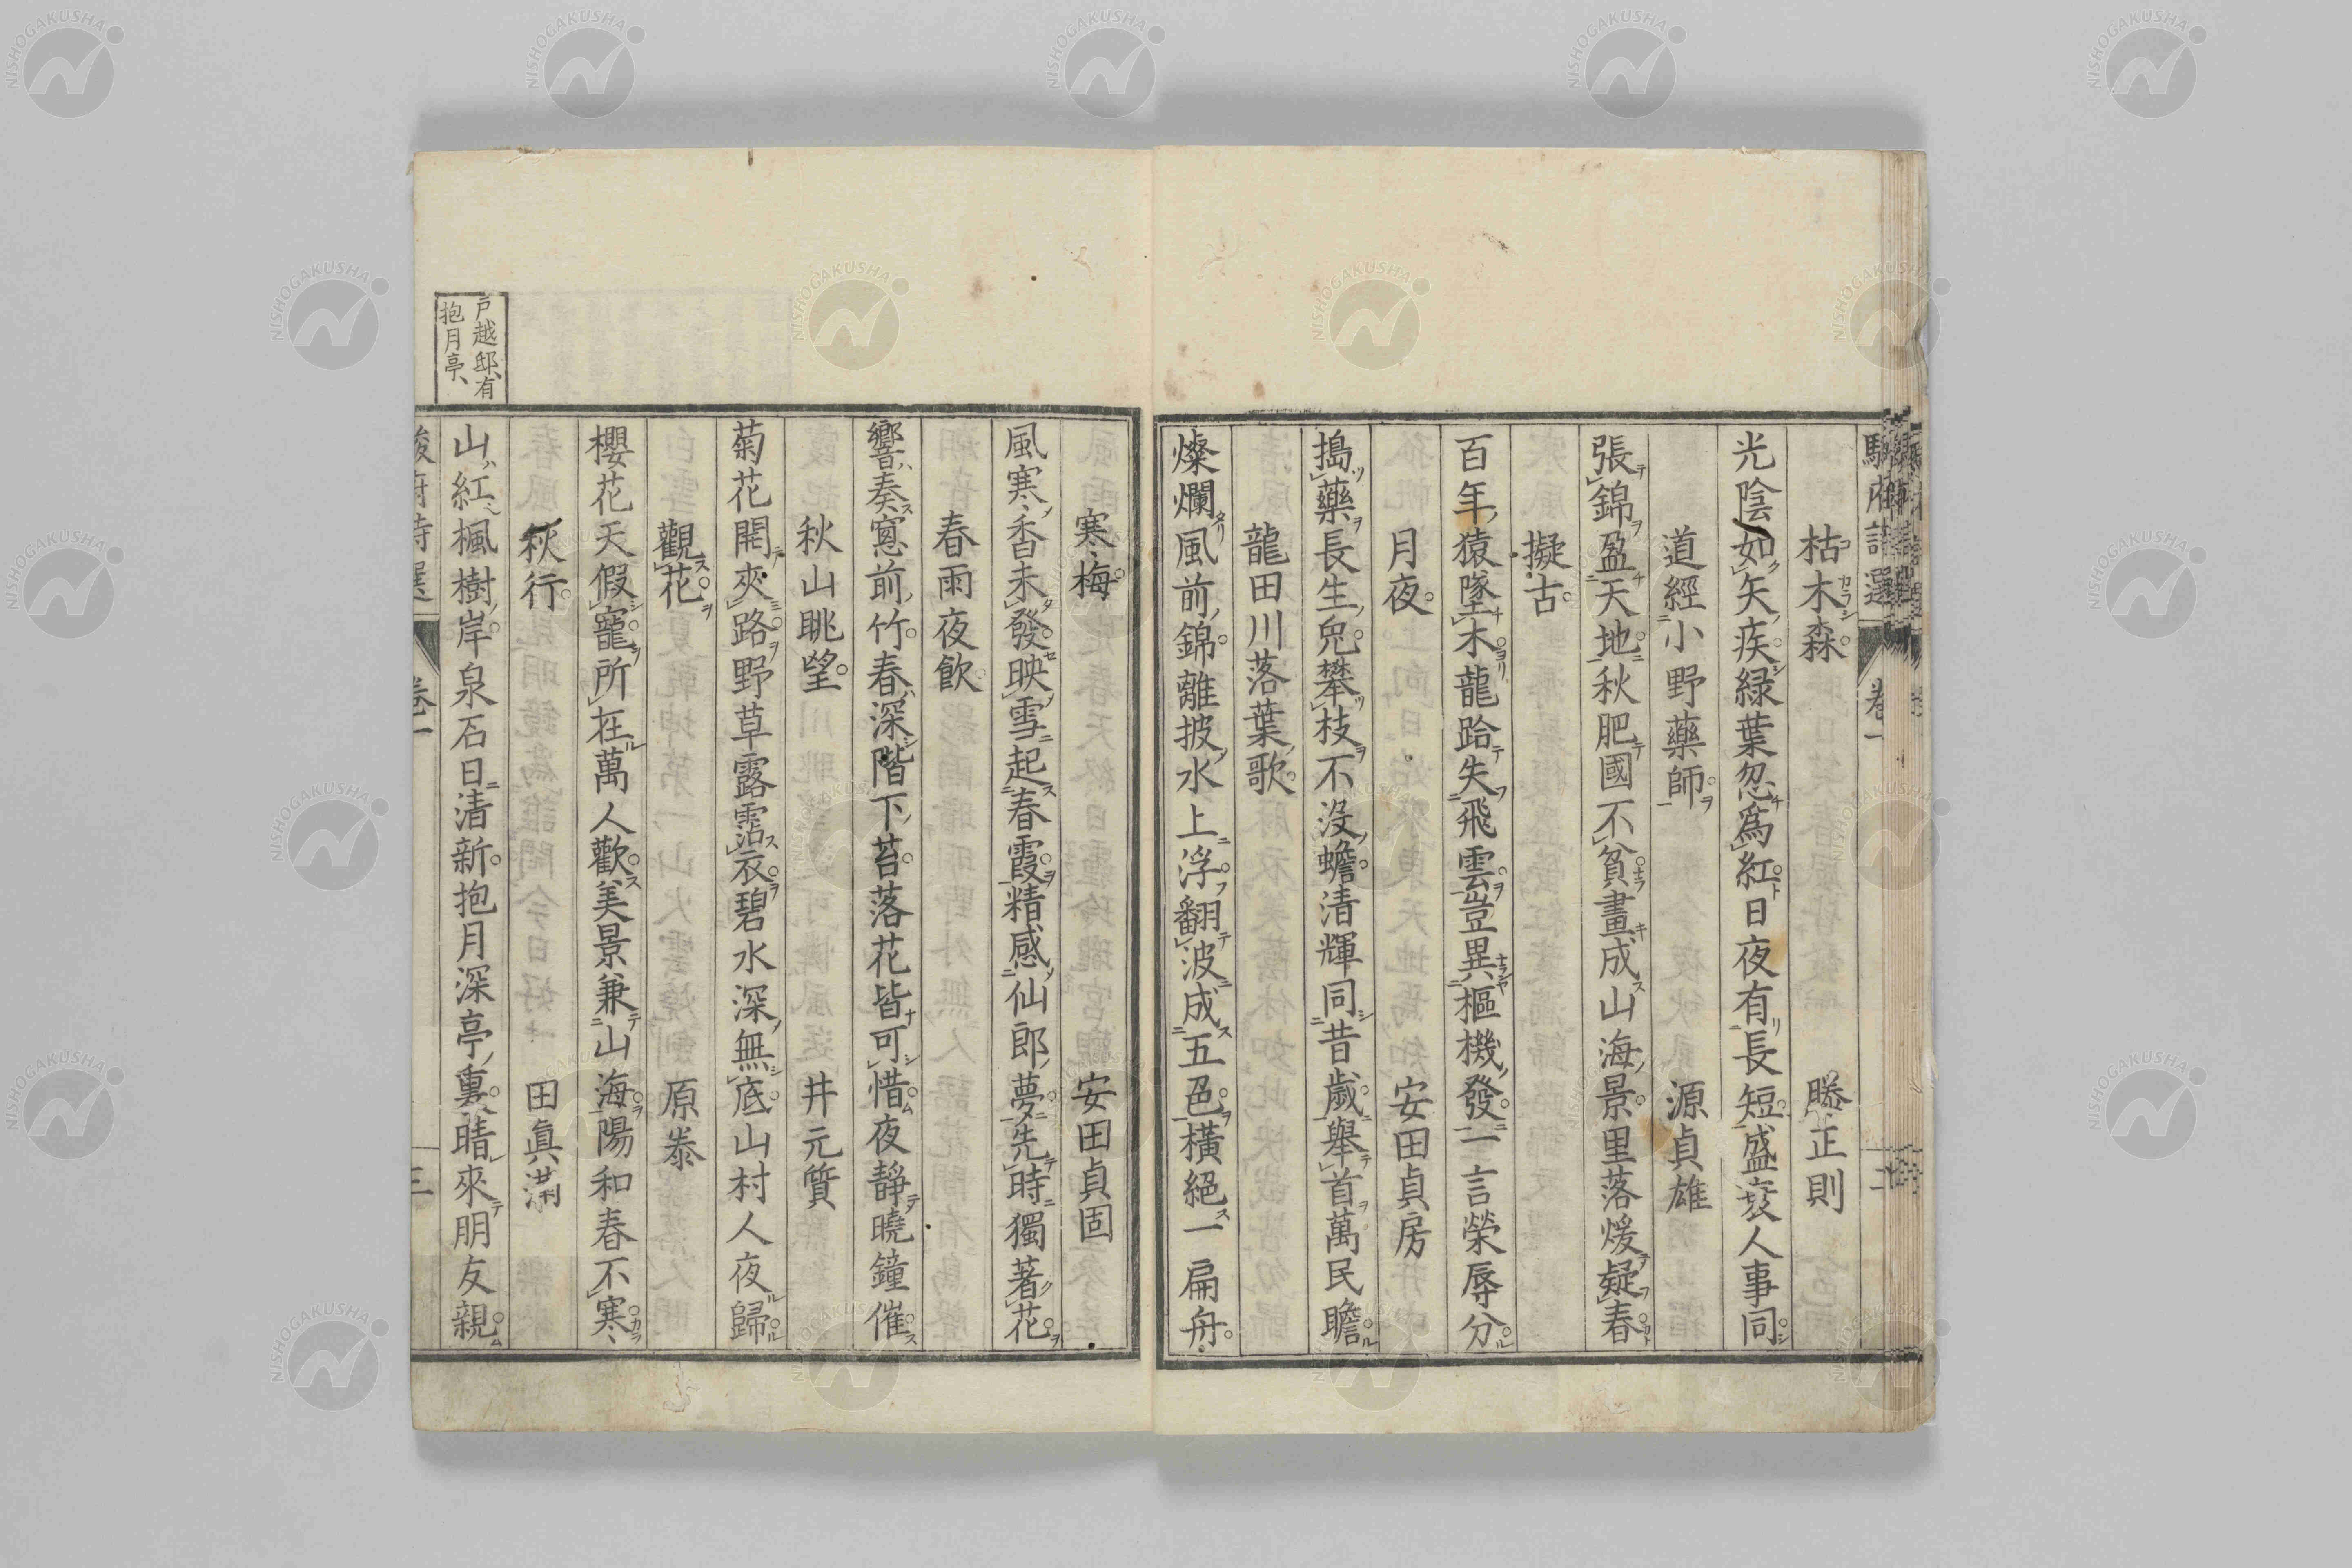 駿府詩選 卷一 二
枯木森 滕正則
光陰如矢疾綠葉忽爲紅日夜有長短盛衰人事同
道經小野藥師 源貞雄
張錦盈天地秋肥國不貧畫成山海景里落煖疑春
擬古
百年猿墜木龍跲失飛雲豈異樞機發一言榮辱分
月夜 安田貞房
搗藥長生兔攀枝不沒蟾清輝同昔歲舉首萬民瞻
龍田川落葉歌
燦爛風前錦離披水上浮翻波成五色橫絕一扁舟
寒梅 安田貞固
風寒香未發映雪起春霞精感仙郎夢先時獨著花
春雨夜飲
響奏窻前竹春深階下苔落花皆可惜夜靜曉鐘催
秋山眺望 井元質
菊花開夾路野草露霑衣碧水深無底山村人夜歸
觀花 原泰
櫻花天假寵所在萬人歡美景兼山海陽和春不寒
秋行 田眞
山紅楓樹岸泉石日清新抱月深亭裏晴來朋友親
戶越邸有
抱月亭
駿府詩選 卷一 三
NISHOGAKUSHA